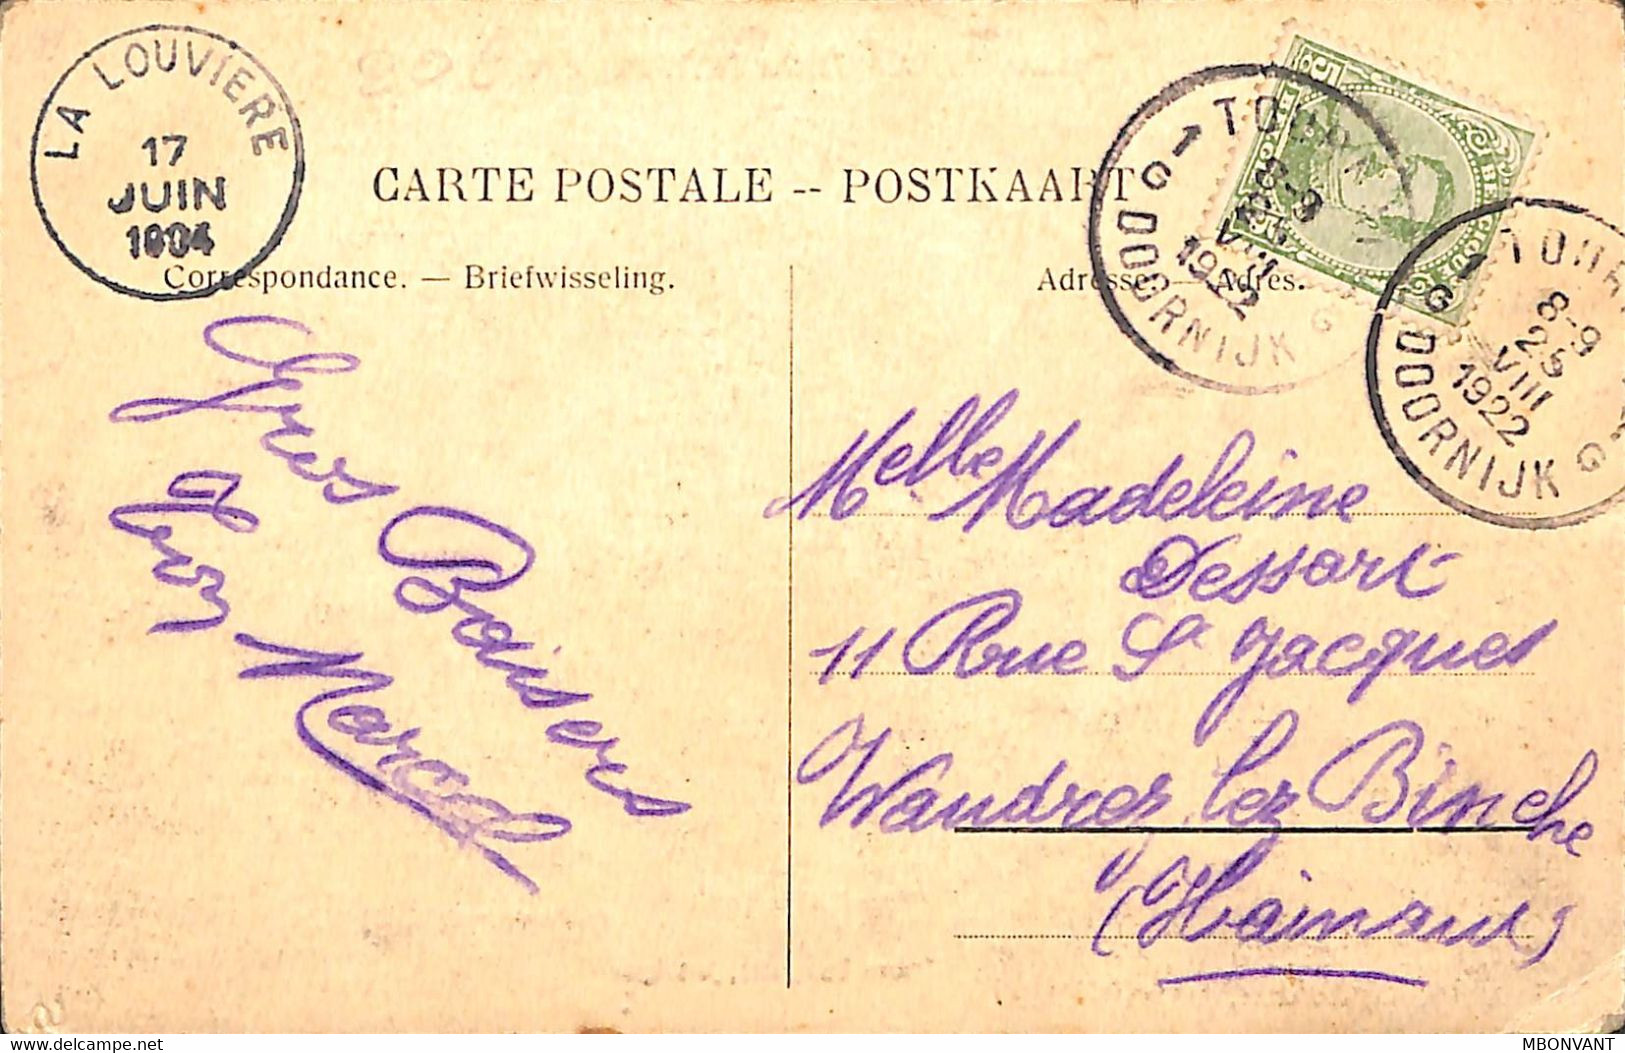 LA LOUVIERE
17
JUIN
1904
CARTE POSTALE -- POSTKAART
Correspondance. — Briefwisseling.
Adresse. — Adres.
1 TOURNAI 1
8-9
25
VIII
1922
G DOORNIJK G
1 TOURN
8-9
25
VIII
1922
G DOORNIJK G
Gros Baisers
à vous
Marcel
Melle Madeleine
Dessart
11 Rue St Jacques
Waudrez lez Binche
(Hainaut)
MBONVANT